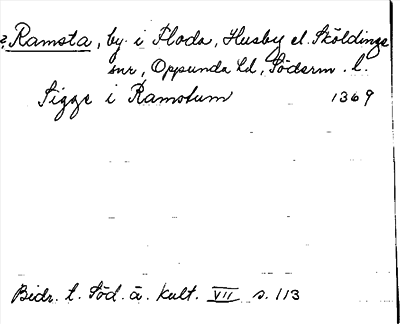 ?Ramsta, by i Floda, Husby el. Sköldinge
snr, Oppunda hd, Söderm. l.
Sigge i Ramstum 1369
Bidr. t. Söd. ä. kult. VII s. 113